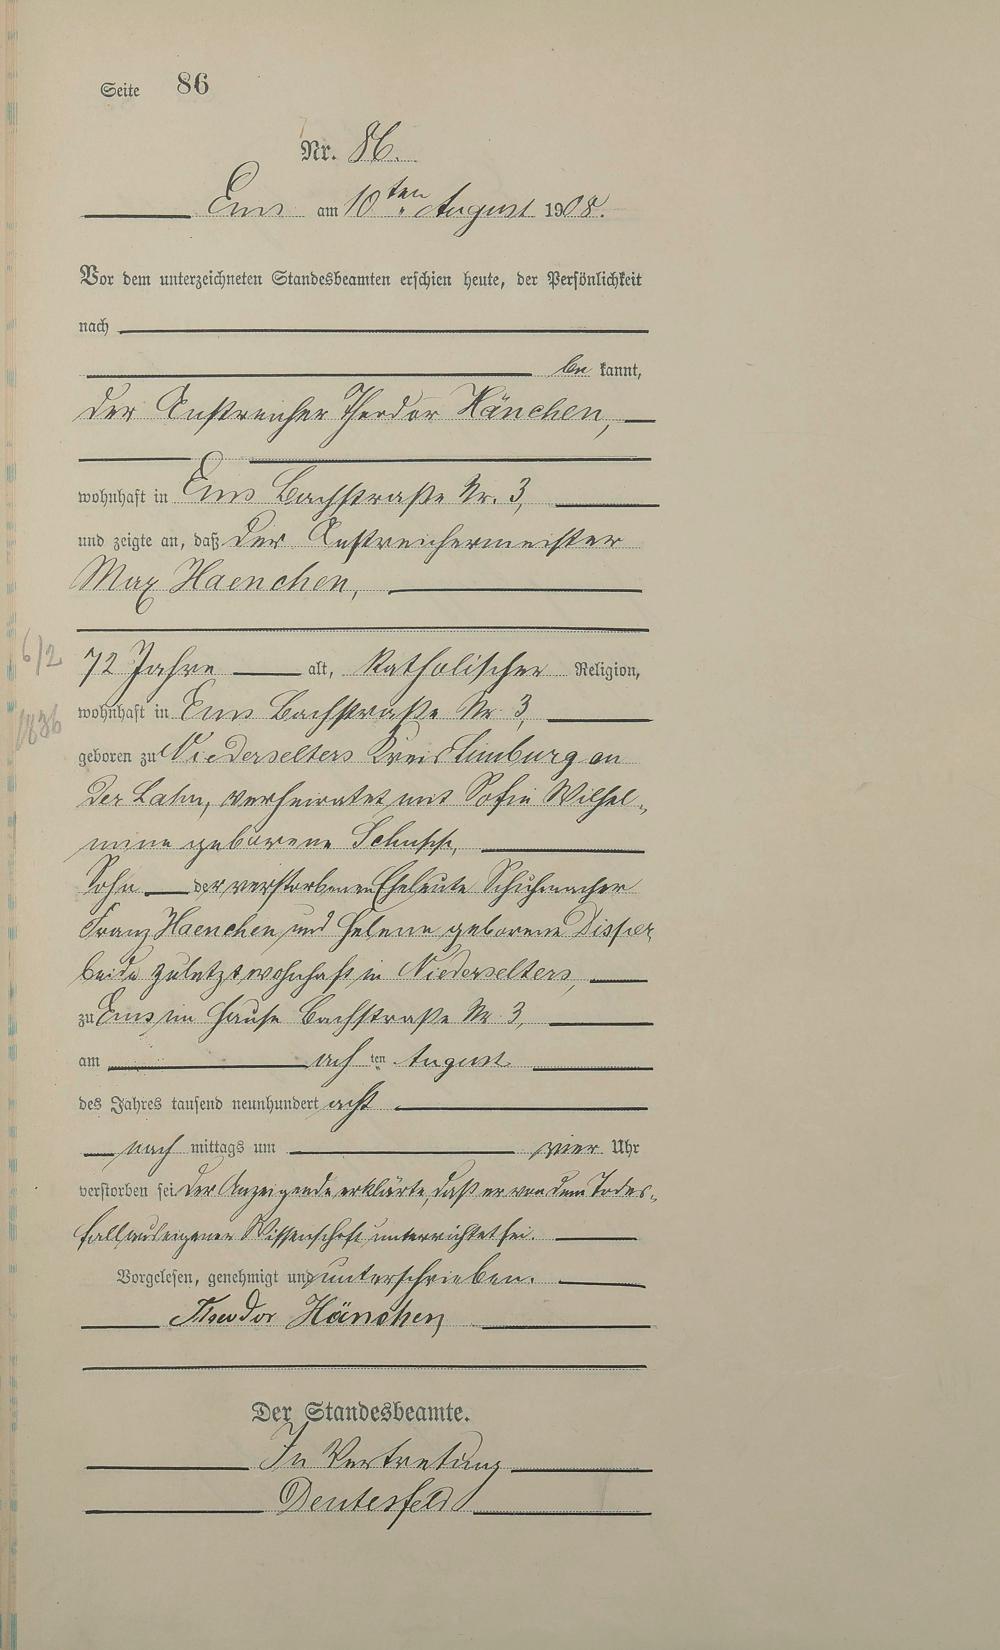 Seite 86
Nr. 86.
Ems am 10ten August 1908.
Vor dem unterzeichneten Standesbeamten erschien heute, der Persönlichkeit
nach
be kannt,
der Anstreicher Theodor Hänchen,
wohnhaft in Ems Bachstraße Nr. 3,
und zeigte an, daß der Anstreichermeister
Max Haenchen,
6/2
72 Jahre alt, katholischer Religion,
1836
wohnhaft in Ems Bachstraße Nr 3,
geboren zu Niederselters Kreis Limburg an
der Lahn, verheiratet mit Sofie Wilhel-
mine geborene Schupp,
Sohn der verstorbenen Eheleute Schuhmacher
Franz Haenchen und Helene geborene
beide zuletzt wohnhaft in Niederselters,
zu Ems im Hause Bachstraße Nr 3,
am ach ten August
des Jahres tausend neunhundert acht
nach mittags um vier Uhr
verstorben sei. Der Anzeigende erklärte, daß er von dem Todes-
fall aus eigener Wissenschaft unterrichtet sei.
Vorgelesen, genehmigt und unterschrieben.
Theodor Hänchen
Der Standesbeamte.
In Vertretung